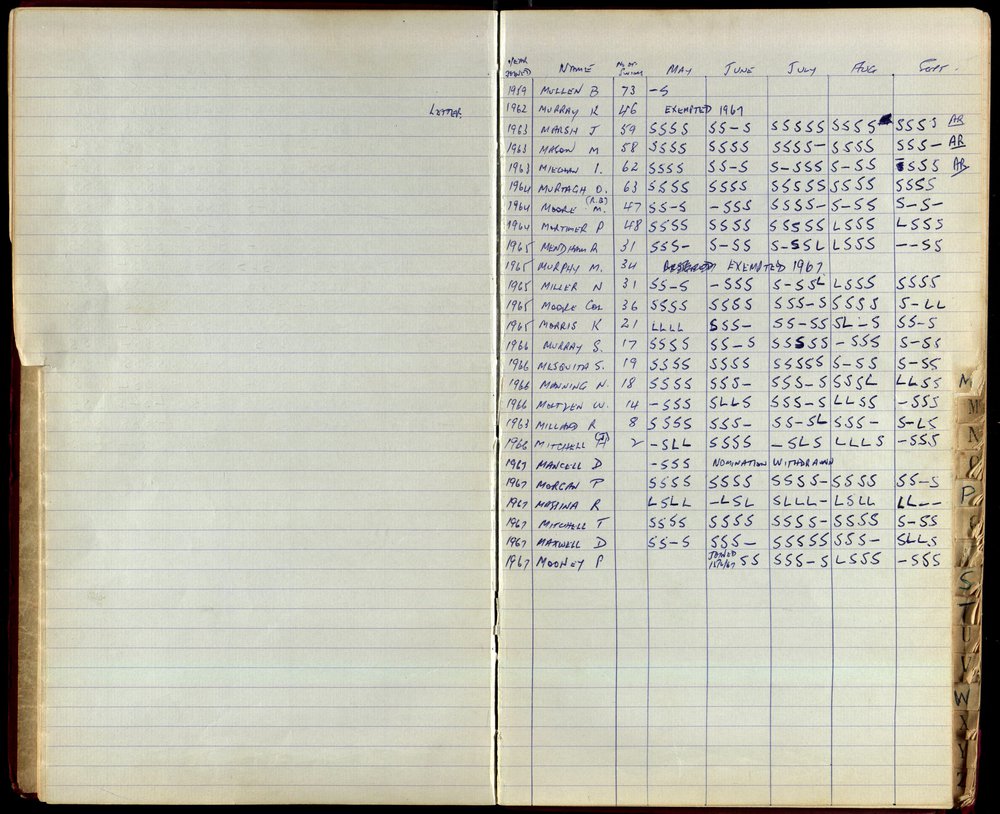 LETTER
YEAR JOINED NAME No OF SWIMS MAY JUNE JULY AUG SEPT.
1959 MULLEN B 73 -S
1962 MURRAY R 46 EXEMPTED 1967
1963 MARSH J 59 SSSS SS-S SSSSS SSSS SSSS AR
1963 MASON M 58 SSSS SSSS SSSS- SSSS SSS- AR
1963 MIEGHAN I. 62 SSSS SS-S S-SSS S-SS SSSS AR
1964 MURTAGH D. 63 SSSS SSSS SSSSS SSSS SSSS
1964 MOORE (R.B) M. 47 SS-S -SSS SSSS- S-SS S-S-
1964 MORTIMER P 48 SSSS SSSS SSSSS LSSS LSSS
1965 MENDHAM R 31 SSS- S-SS S-SSL LSSS --SS
1965 MURPHY M. 34 EXEMPTED 1967
1965 MILLER N 31 SS-S -SSS S-SSL LSSS SSSS
1965 MOORE COL 36 SSSS SSSS SSS-S SSSS S-LL
1965 MORRIS K 21 LLLL SSS- SS-SS SL-S SS-S
1966 MURRAY S. 17 SSSS SS-S SSSSS -SSS S-SS
1966 MESQUITA S. 19 SSSS SSSS SSSSS S-SS S-SS
1966 MANNING N. 18 SSSS SSS- SSS-S SSSL LLSS
1966 W. 14 -SSS SLLS SSS-S LLSS -SSS
1963 MILLARD R 8 SSSS SSS- SS-SL SSS- S-LS
1966 MITCHELL 2 -SLL SSSS -SLS LLLS -SSS
1967 MANCELL D -SSS NOMINATION WITHDRAWN
1967 MORGAN P SSSS SSSS SSSS- SSSS SS-S
1967 MESSINA R LSLL -LSL SLLL- LSLL LL--
1967 MITCHELL T SSSS SSSS SSSS- SSSS S-SS
1967 MAXWELL D SS-S SSS- SSSSS SSS- SLLS
1967 MOONEY P JOINED SS SSS-S LSSS -SSS
M
M
N
P
S
T
U
V
W
X
Y
Z